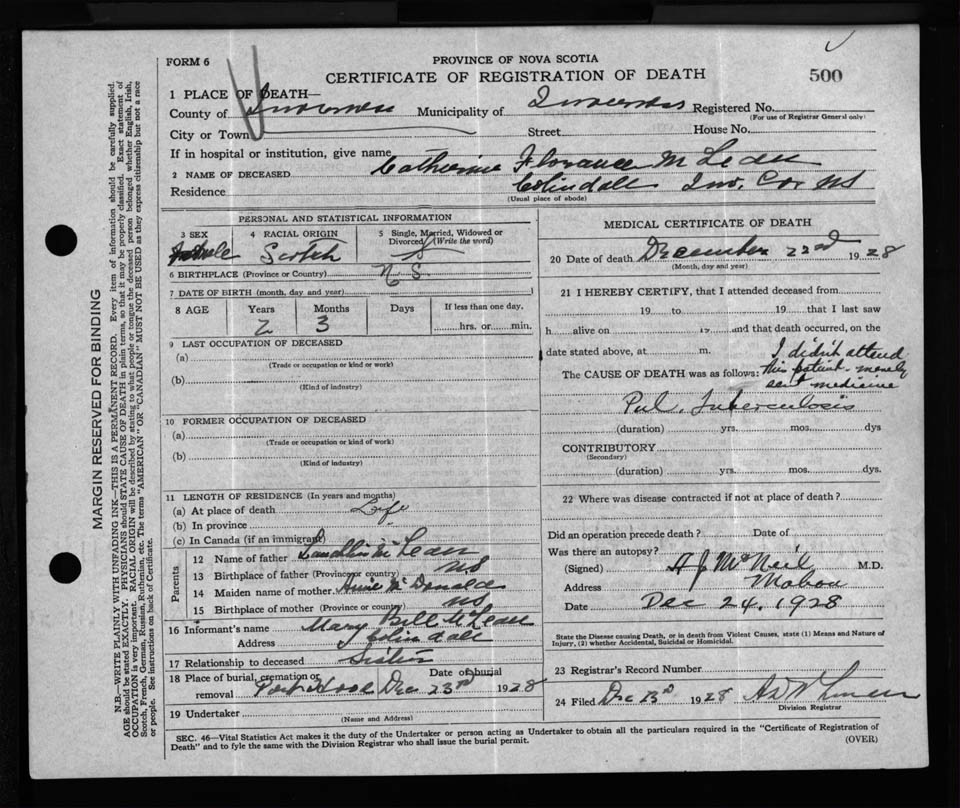 FORM 6
PROVINCE OF NOVA SCOTIA
CERTIFICATE OF REGISTRATION OF DEATH
500
1 PLACE OF DEATH—
County of Inverness Municipality of Inverness Registered No.
(For use of Registrar General only)
City or Town Street House No.
If in hospital or institution, give name
2 NAME OF DECEASED Catherine Florance McLean
Residence Colindale Inv. Co. NS
(Usual place of abode)
PERSONAL AND STATISTICAL INFORMATION
3 SEX 4 RACIAL ORIGIN 5 Single, Married, Widowed or Divorced (Write the word)
Female Scotch S
6 BIRTHPLACE (Province or Country) N S.
7 DATE OF BIRTH (month, day and year)
8 AGE Years Months Days If less than one day,
2 3 hrs. or min.
9 LAST OCCUPATION OF DECEASED
(a)
(Trade or occupation or kind or work)
(b)
(Kind of industry)
10 FORMER OCCUPATION OF DECEASED
(a)
(Trade or occupation or kind of work)
(b)
(Kind of industry)
11 LENGTH OF RESIDENCE (In years and months)
(a) At place of death Life
(b) In province
(c) In Canada (if an immigrant)
Parents
12 Name of father McLean
13 Birthplace of father (Province or country) NS
14 Maiden name of mother Annie McDonald
15 Birthplace of mother (Province or country) NS
16 Informant's name Mary Bell McLean
Address Colindale
17 Relationship to deceased Sister
18 Place of burial, cremation or removal Port Hood Date of burial Dec 23rd 1928
19 Undertaker
(Name and Address)
MEDICAL CERTIFICATE OF DEATH
20 Date of death December 22nd 1928
(Month, day and year)
21 I HEREBY CERTIFY, that I attended deceased from
19 to 19 that I last saw
h alive on 19 and that death occurred, on the
date stated above, at m.
I didn't attend
The CAUSE OF DEATH was as follows: this patient - merely
sent medicine
Pul. Tuberculosis
(duration) yrs. mos. dys
CONTRIBUTORY
(Secondary)
(duration) yrs. mos. dys.
22 Where was disease contracted if not at place of death?
Did an operation precede death? Date of
Was there an autopsy?
(Signed) A J McNeil M.D.
Address Mabou
Date Dec 24, 1928
State the Disease causing Death, or in death from Violent Causes, state (1) Means and Nature of Injury, (2) whether Accidental, Suicidal or Homicidal.
23 Registrar's Record Number
24 Filed Dec 1928
Division Registrar
SEC. 46—Vital Statistics Act makes it the duty of the Undertaker or person acting as Undertaker to obtain all the particulars required in the "Certificate of Registration of
Death" and to fyle the same with the Division Registrar who shall issue the burial permit. (OVER)
MARGIN RESERVED FOR BINDING
N.B.—WRITE PLAINLY WITH UNFADING INK—THIS IS A PERMANENT RECORD. Every item of information should be carefully supplied.
AGE should be stated EXACTLY. PHYSICIANS should STATE CAUSE OF DEATH in plain terms, so that it may be properly classified. Exact statement of
OCCUPATION is very important. RACIAL ORIGIN will be described by stating to what people or tongue the deceased person belonged whether English, Irish,
Scotch, French, German, Russian, Ruthenian, etc. The terms "AMERICAN" or "CANADIAN" MUST NOT BE USED as they express citizenship but not a race
or people. See instructions on back of Certificate.